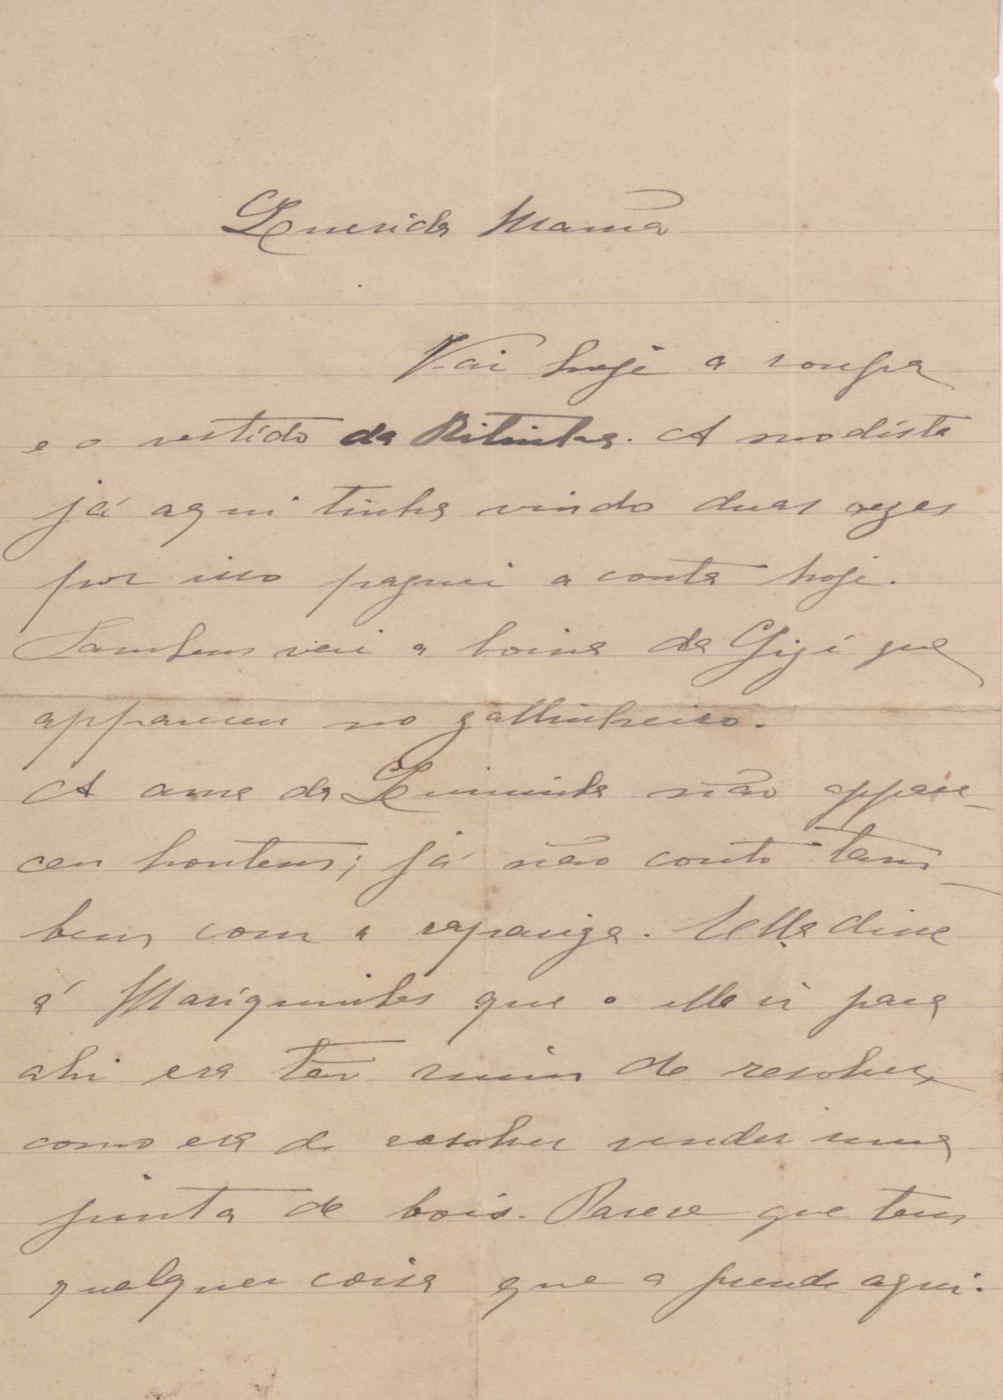 Querida Mamã
Vai hoje a roupa
e o vestido da Ritinha. A modista
já aqui tinha vindo duas vezes
por isso paguei a conta hoje.
Tambem vai a boina da Gigi que
appareceu no gallinheiro.
A ama da não appare-
ceu hontem; já não conto tam-
bem com a rapariga. Ella disse
á Mariquinhas que o ella ir para
ahi era tão ruim de resolver
como era de resolver vender uma
junta de bois. Parece que tem
qualquer coisa que a prende aqui.